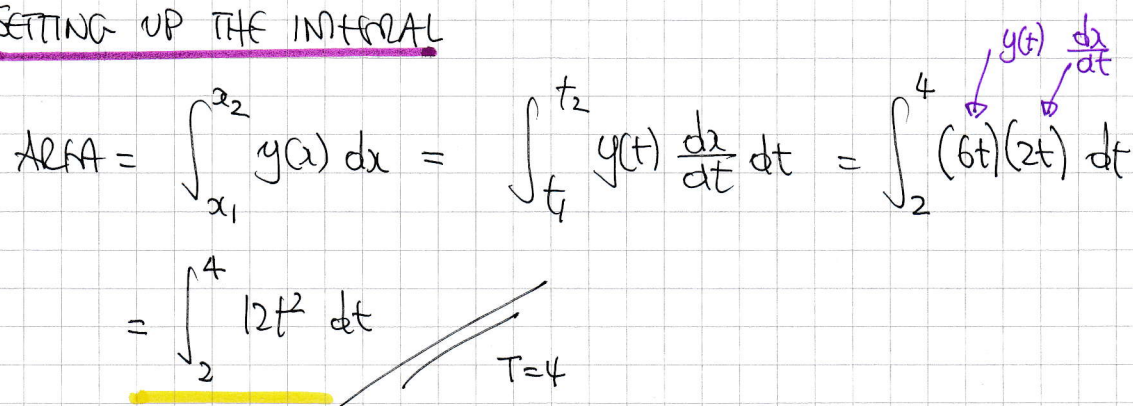 SETTING UP THE INTEGRAL
y(t) dx/dt
AREA = ∫_{x₁}^{x₂} y(x) dx = ∫_{t₁}^{t₂} y(t) dx/dt dt = ∫_2^4 (6t)(2t) dt
= ∫_2^4 12t² dt
T=4